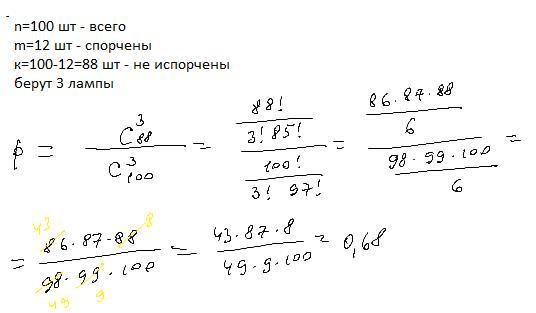 n=100 шт - всего
m=12 шт - спорчены
к=100-12=88 шт - не испорчены
берут 3 лампы
p = C₈₈³ / C₁₀₀³ = (88! / (3! 85!)) / (100! / (3! 97!)) = (86·87·88 / 6) / (98·99·100 / 6) =
= (86·87·88) / (98·99·100) = (43·87·8) / (49·9·100) = 0,68
43 8
49 9